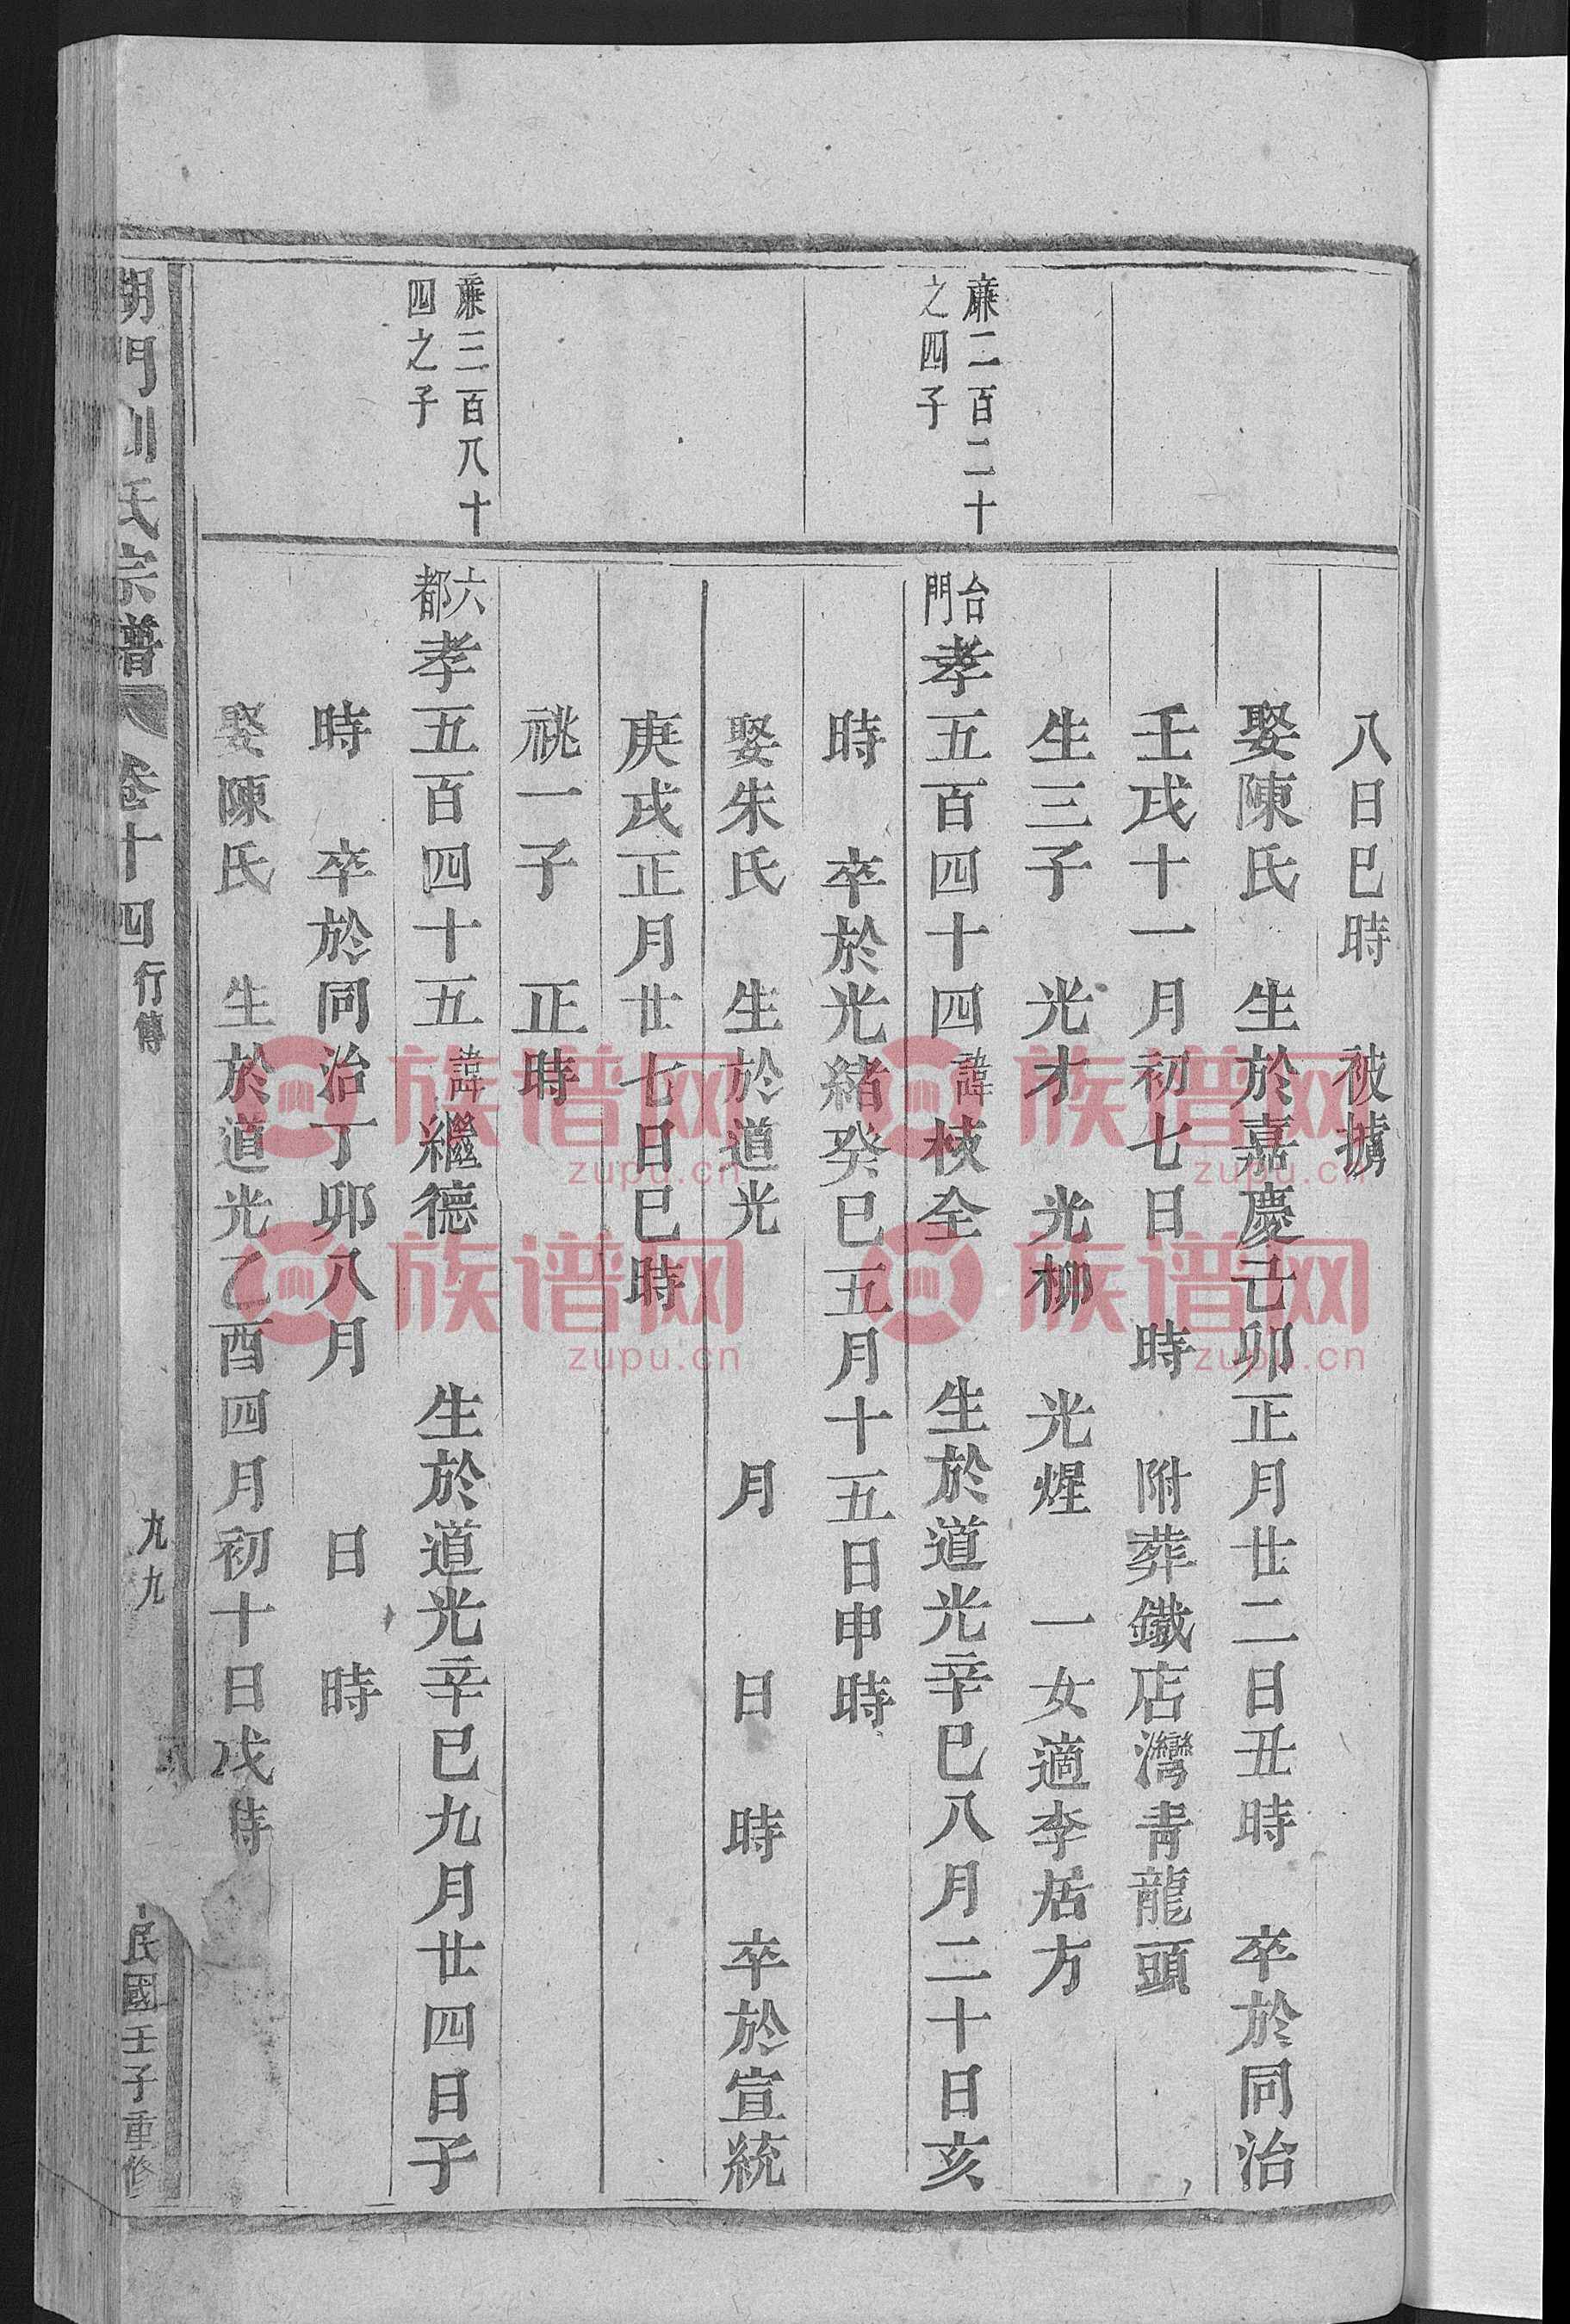 八日巳時　被擄
娶陳氏　生於嘉慶己卯正月廿二日丑時　卒於同治
壬戌十一月初七日　時　附葬鐵店灣青龍頭
生三子　光才　光柳　光煋　一女適李居方
廉二百二十
之四子
台門孝五百四十四諱枝全　生於道光辛巳八月二十日亥
時　卒於光緒癸巳五月十五日申時
娶朱氏　生於道光　月　日　時　卒於宣統
庚戌正月廿七日巳時
祧一子　正時
廉三百八十
四之子
六都孝五百四十五諱繼德　生於道光辛巳九月廿四日子
時　卒於同治丁卯八月　日　時
娶陳氏　生於道光乙酉四月初十日戌時
門　氏宗譜　卷十四　行傳　九九　民國壬子重修
族谱网
zupu.cn
族谱网
zupu.cn
族谱网
zupu.cn
族谱网
zupu.cn